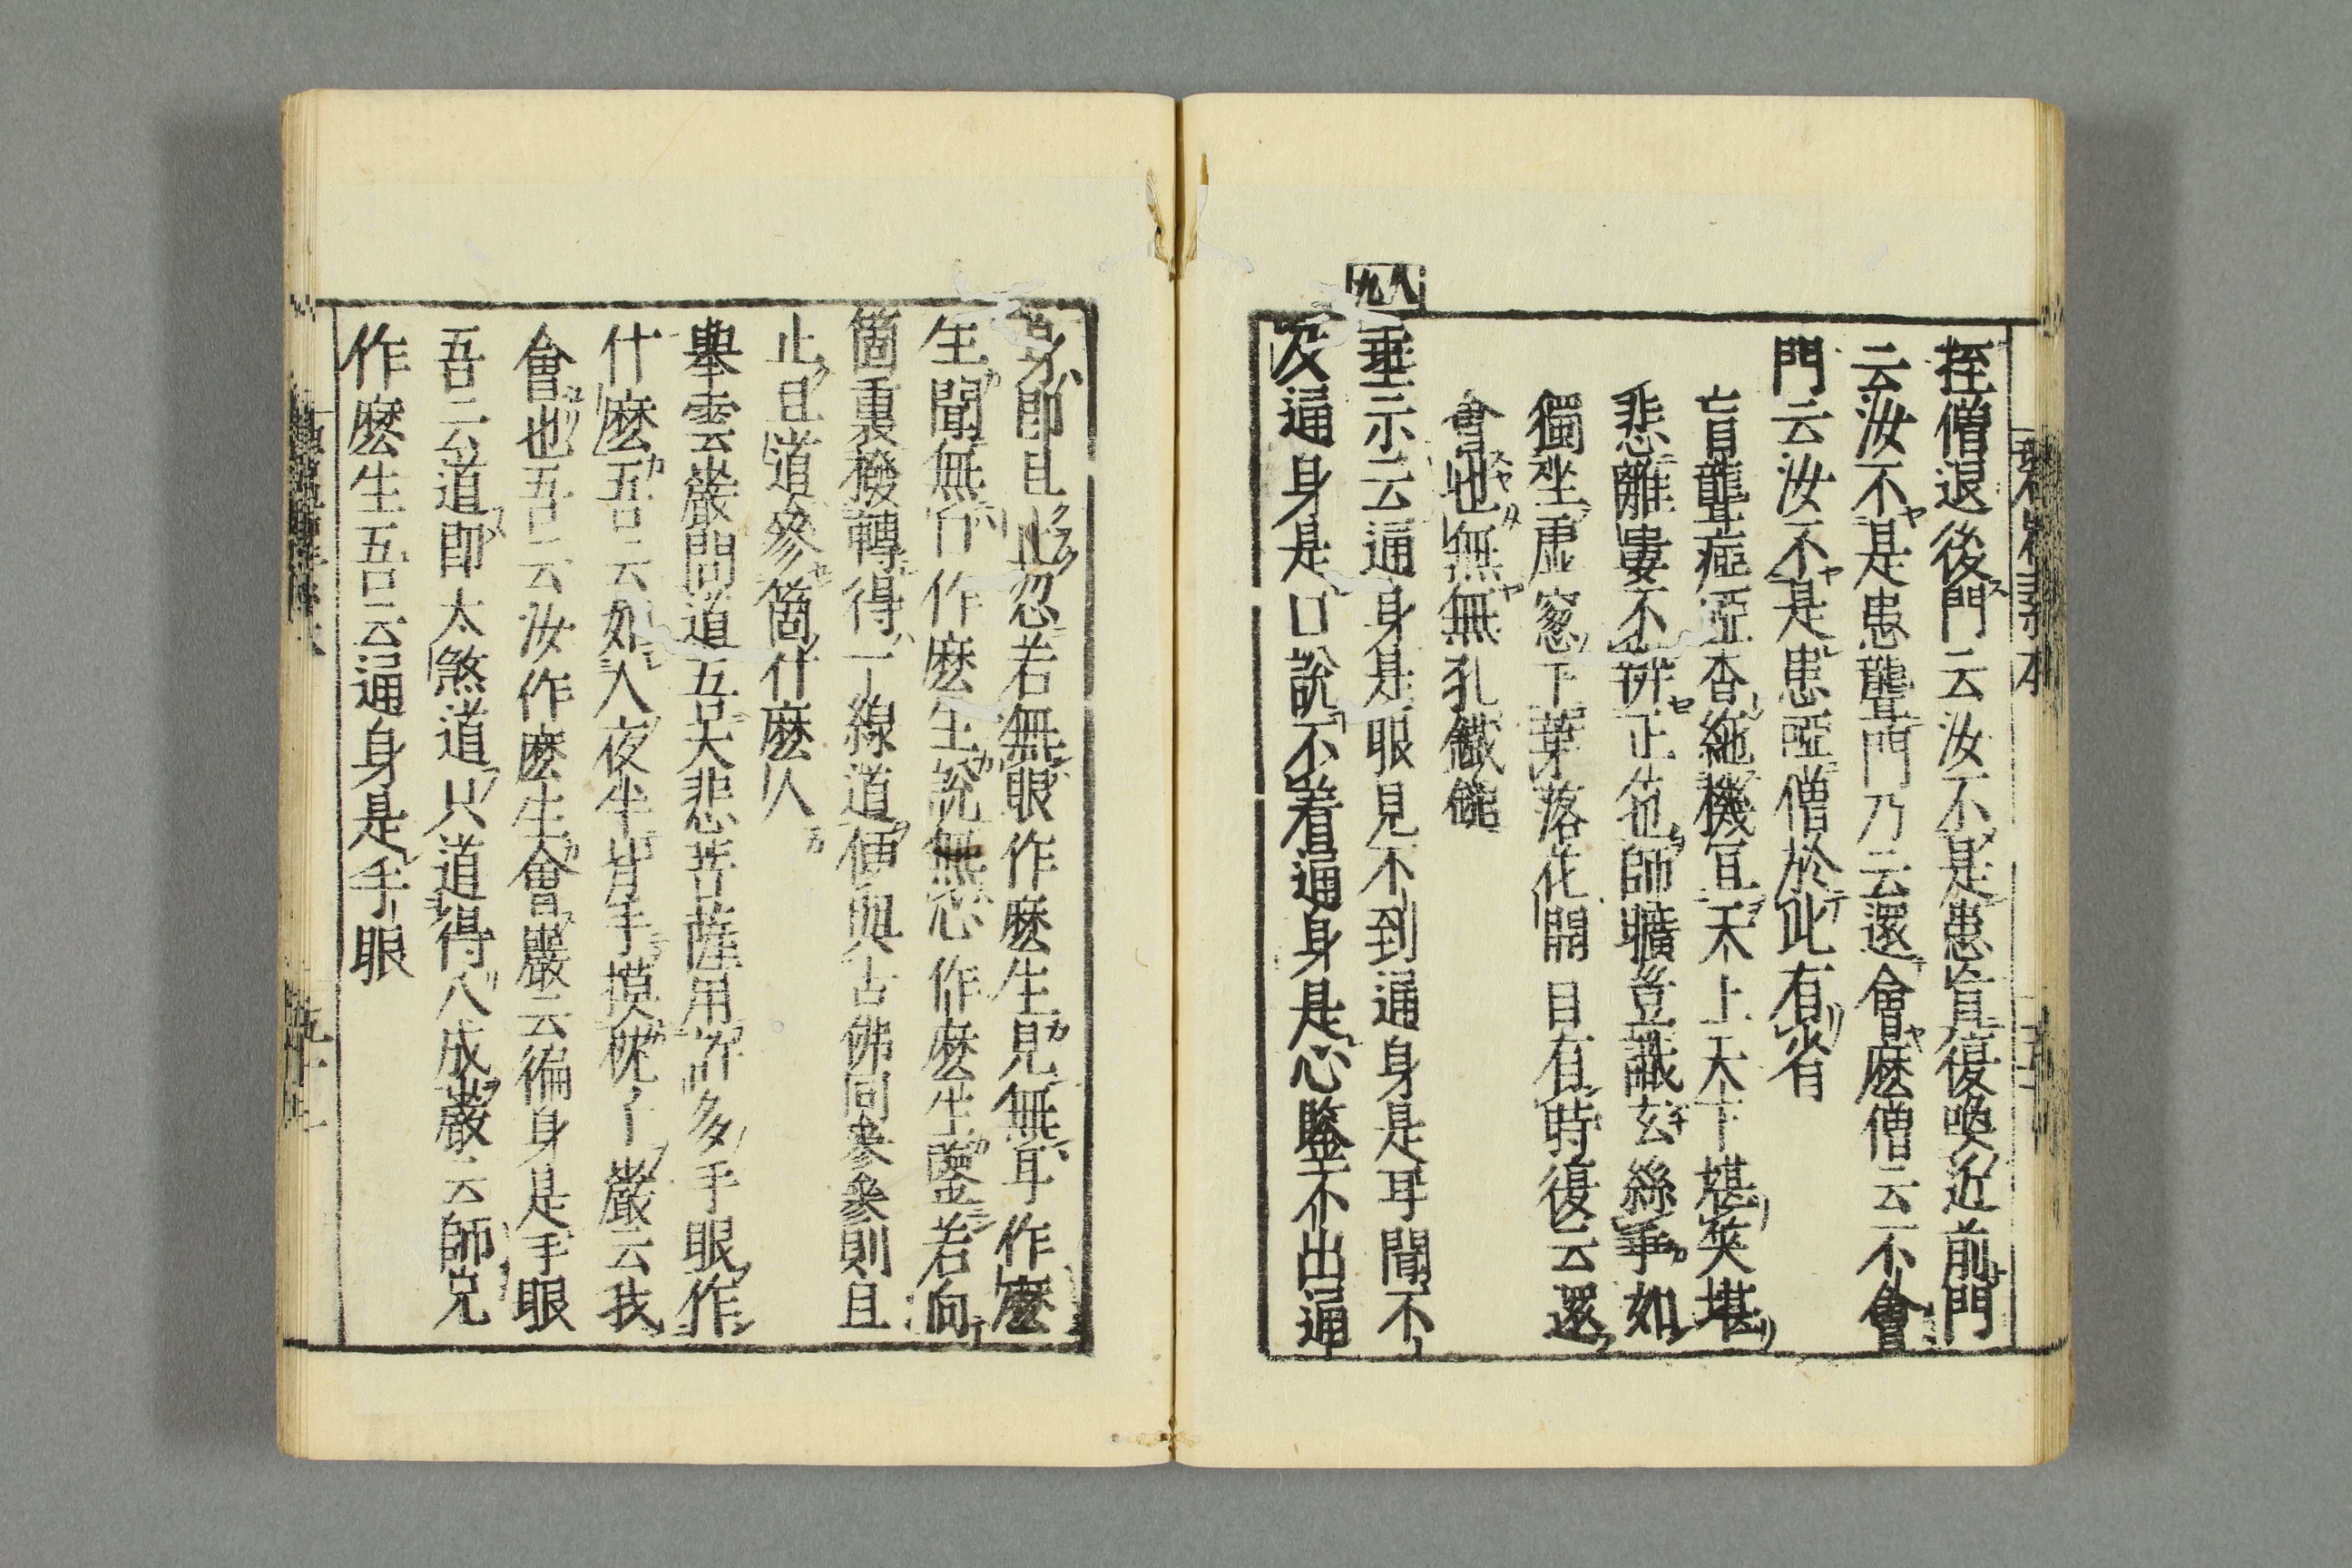 挃僧退後門云汝不是患盲復喚近前門
云汝不是患聾門乃云還會麽僧云不會
門云汝不是患啞僧於此有省
盲聾瘂啞杳絶機宜天上天下堪笑堪
悲離婁不辨正色師曠豈識玄絲爭如
獨坐虚窓下葉落花開自有時復云還
會也無無孔鐵鎚
八九
垂示云通身是眼見不到通身是耳聞不
及通身是口說不着通身是心鑒不出通
身即且止忽若無眼作麽生見無耳作麽
生聞無口作麽生說無心作麽生鑒若向
箇裏撥轉得一線道便與古佛同參參則且
止且道參箇什麽人
擧雲巖問道吾大悲菩薩用許多手眼作
什麽吾云如人夜半背手摸枕子巖云我
會也吾云汝作麽生會巖云徧身是手眼
吾云道即太煞道只道得八成巖云師兄
作麽生吾云通身是手眼